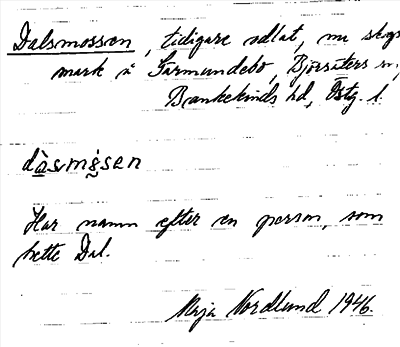 Dalsmossen, tidigare odlat, nu skogs
mark å Sarmundebo, Björsäters sn,
Bankekinds hd, Östg. l.
dàsmòsen
Har namn efter en person, som
hette Dal.
Maja Nordlund 1946.